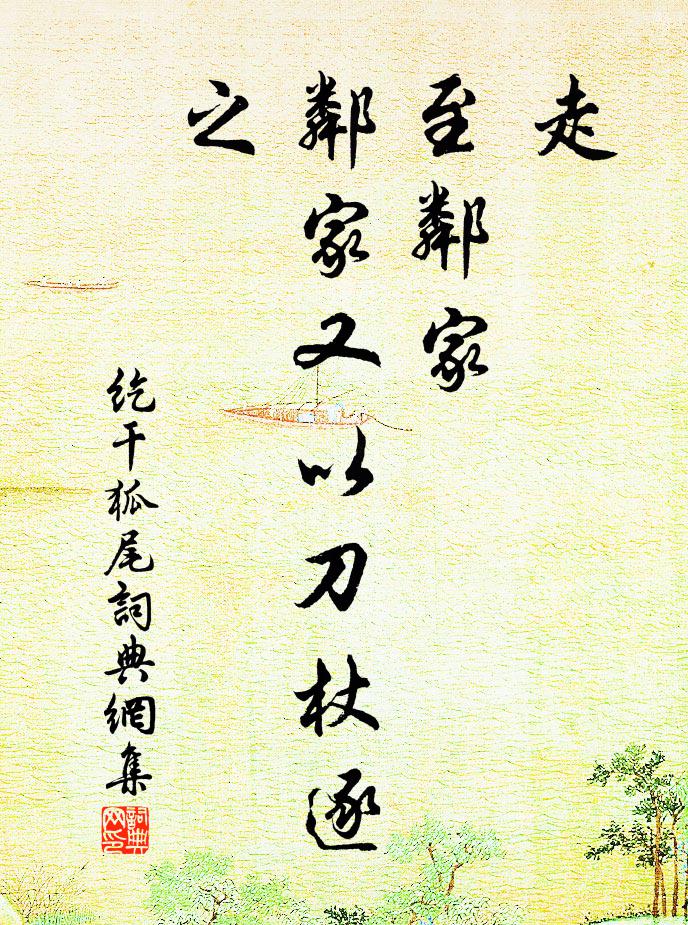 走
至鄰家
鄰家又以刀杖逐
之
紇干狐尾詞典網集
詞典網印